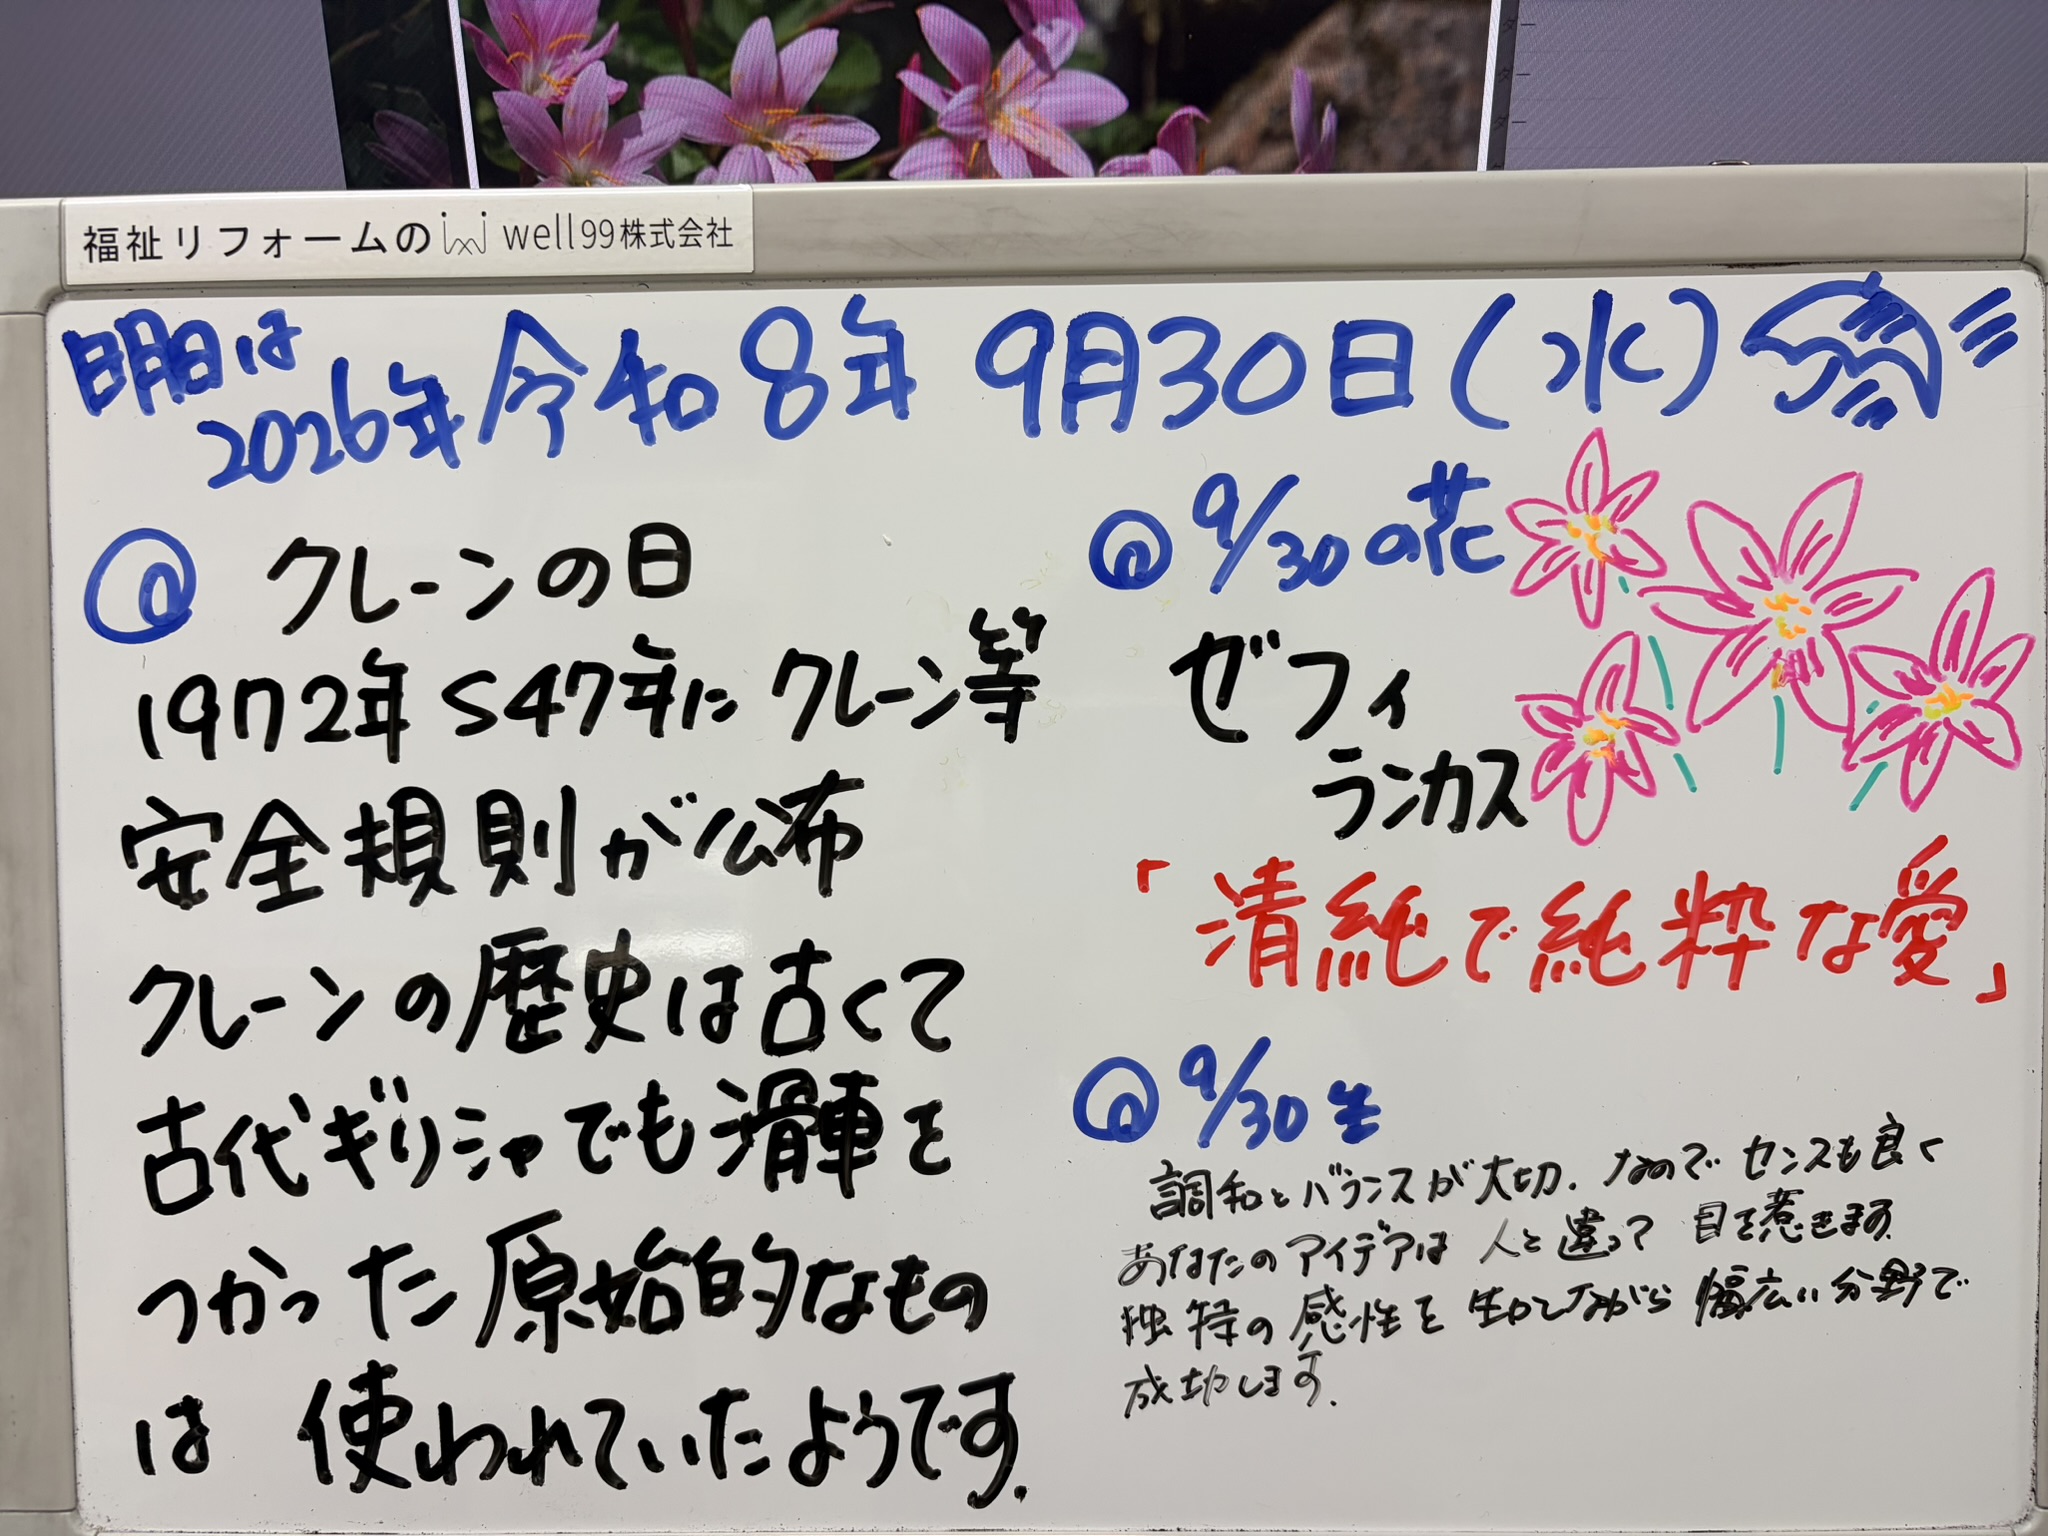 福祉リフォームの well99株式会社
明日は
2026年 令和8年 9月30日(水)
@ クレーンの日
1972年 S47年に クレーン等
安全規則が公布
クレーンの歴史は古くて
古代ギリシャでも滑車を
つかった原始的なもの
は 使われていたようです.
@ 9/30の花
ゼフィ
ランカス
「清純で純粋な愛」
@ 9/30生
調和とバランスが大切. なのでセンスも良く
あなたのアイデアは 人と違って 目を惹きます.
独特の感性を 生かしながら 幅広い分野で
成功します.